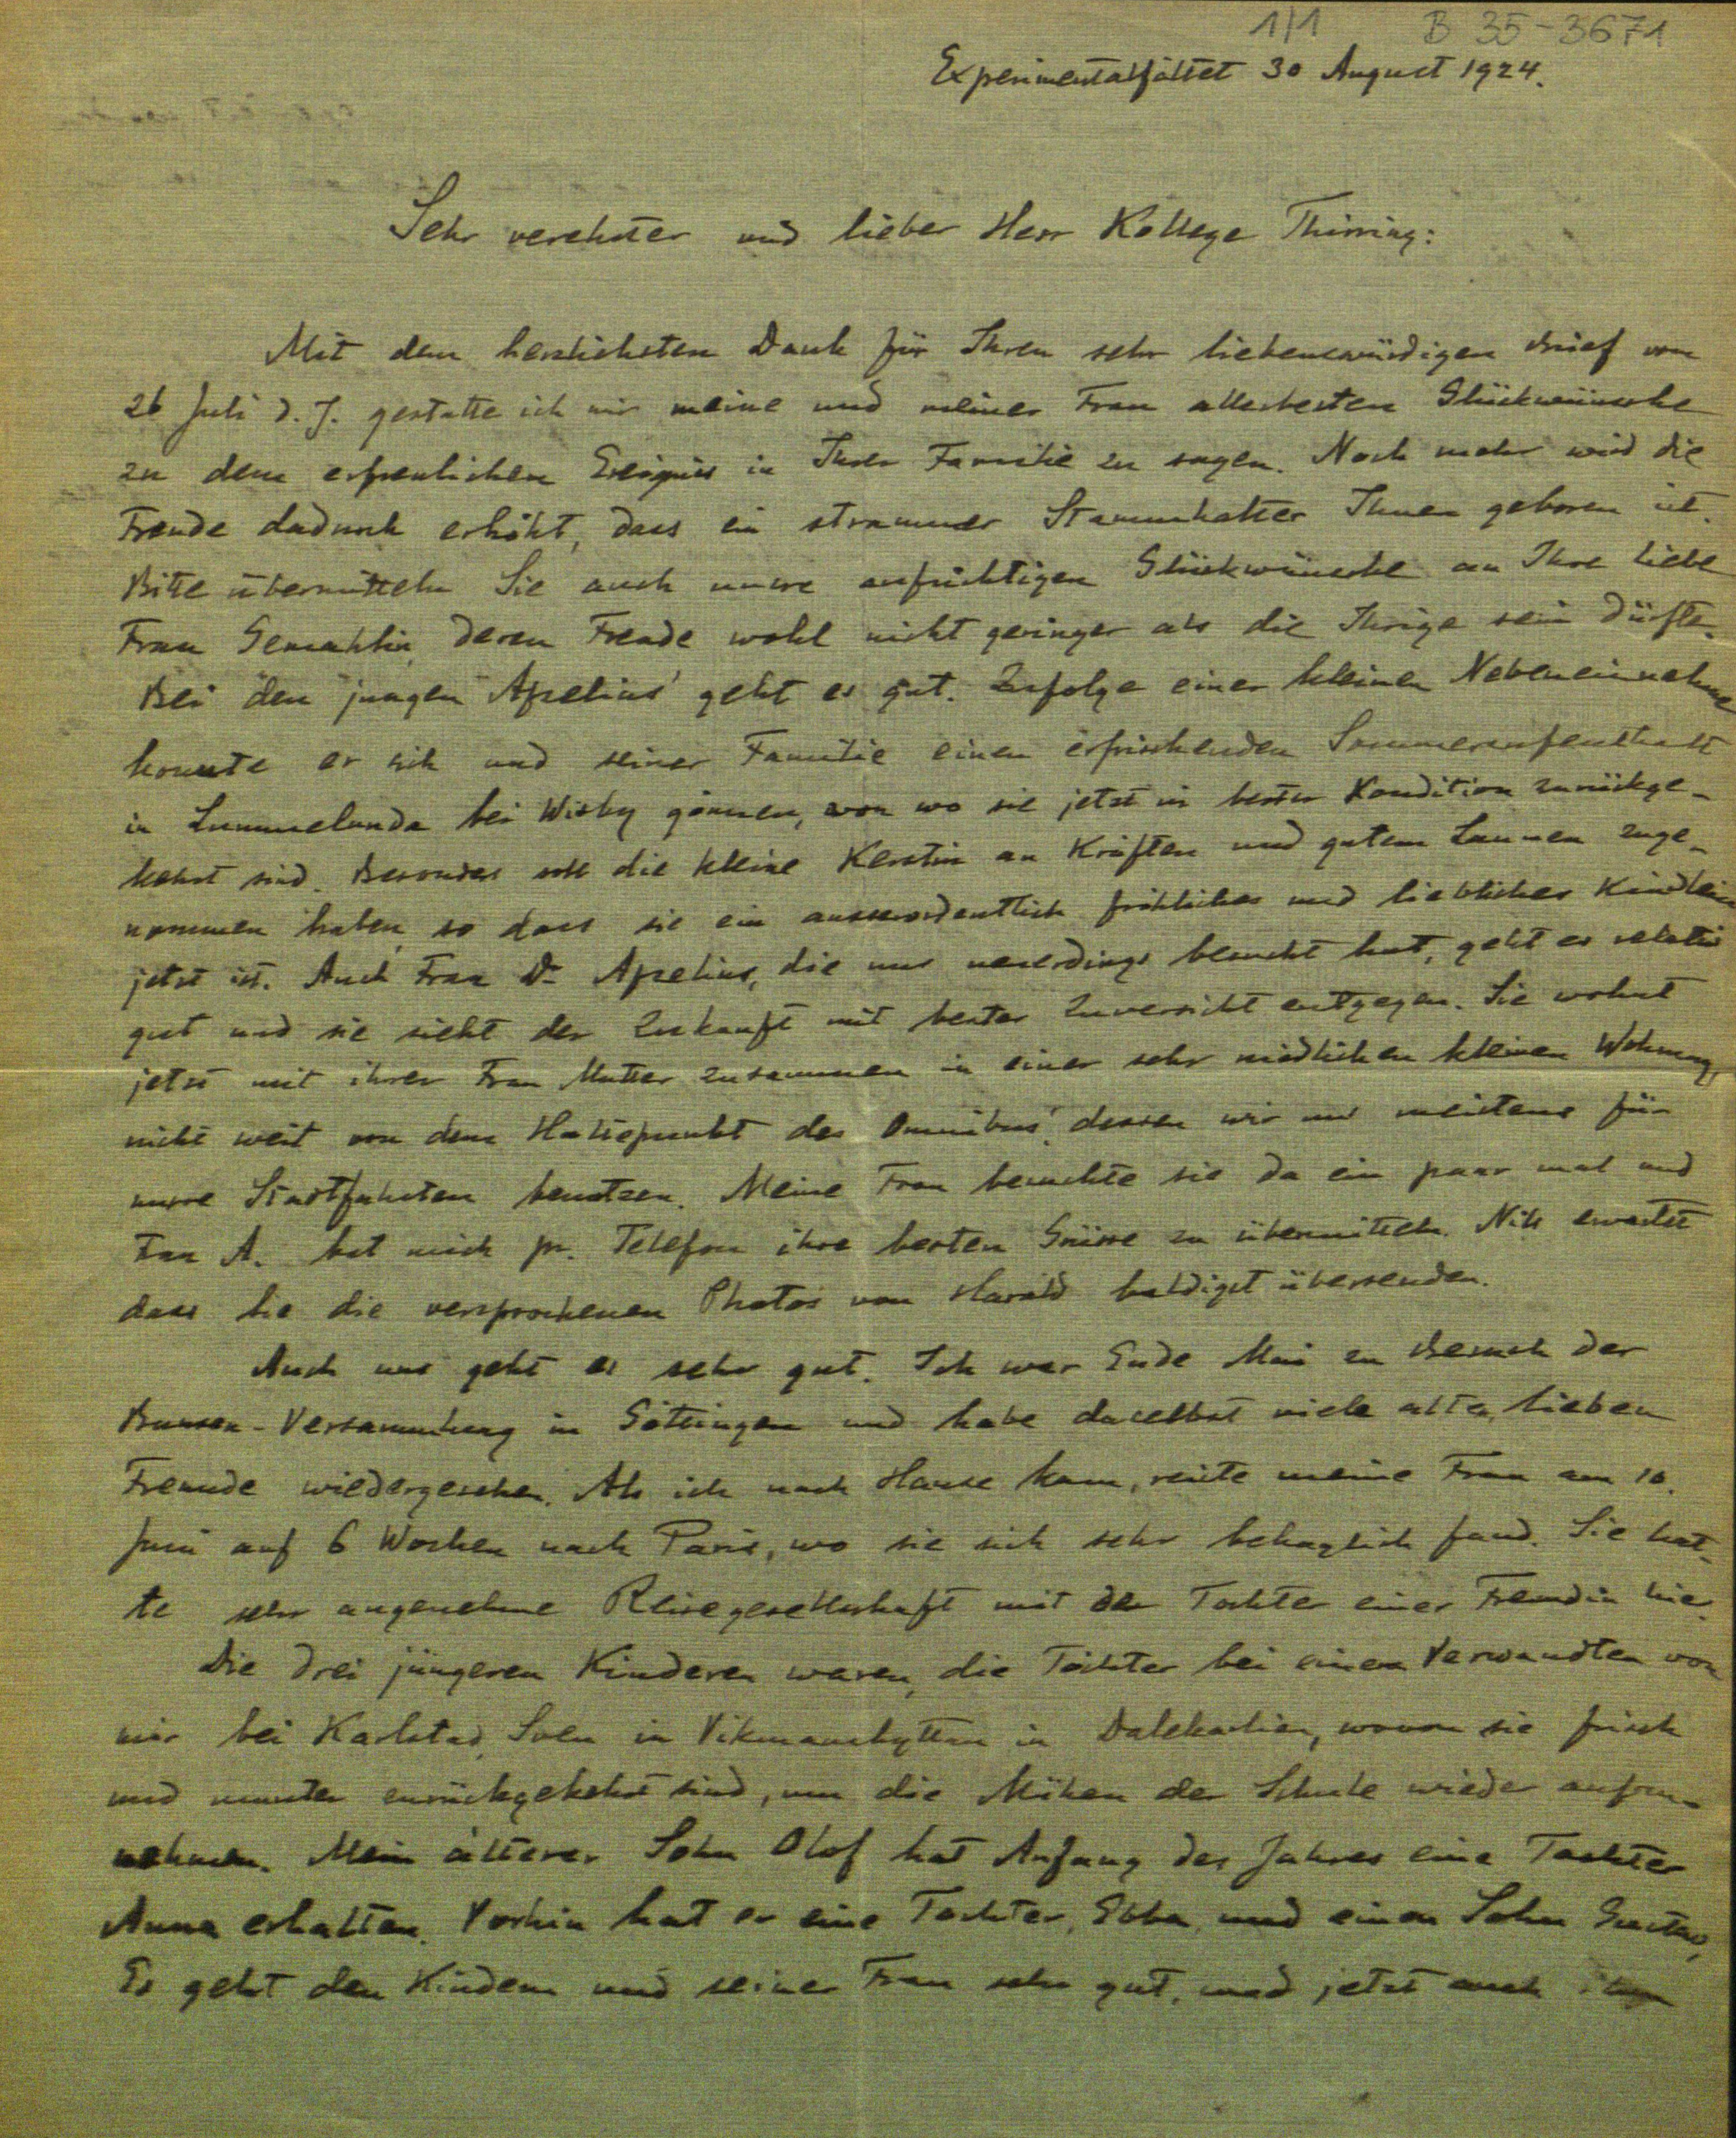 1/1 B 35-3671
Experimentalfältet 30 August 1924.
Sehr verehrter und lieber Herr Kollege Thirring:
Mit dem herzlichsten Dank für Ihren sehr liebenswürdigen Brief vom
26 Juli d. J. gestatte ich mir meine und meiner Frau allerbesten Glückwünsche
zu dem erfreulichen Ereignis in Ihrer Familie zu sagen. Noch mehr wird die
Freude dadurch erhöht, dass ein strammer Stammhalter Ihnen geboren ist.
Bitte übermitteln Sie auch unsre aufrichtigen Glückwünsche an Ihre liebe
Frau Gemahlin, deren Freude wohl nicht geringer als die Ihrige sein dürfte.
Bei den jungen Apelius' geht es gut. Zufolge einer kleinen Nebeneinnahme
konnte er sich und seiner Familie einen erfrischenden Sommeraufenthalt
in Lummelunda bei Wisby gönnen, von wo sie jetzt in bester Kondition zurückge-
kehrt sind. Besonders soll die kleine Kerstin an Kräften und gutem Launen zuge-
nommen haben, so dass sie ein ausserordentlich fröhliches und liebliches Kindlein
jetzt ist. Auch Frau Dr Apelius, die uns neuerdings besucht hat, geht es relativ
gut und sie sieht der Zukunft mit bester Zuversicht entgegen. Sie wohnt
jetzt mit ihrer Frau Mutter zusammen in einer sehr niedlichen kleinen Wohnung,
nicht weit von dem Haltepunkt des Omnibus' dessen wir uns meistens für
unsre Stadtfahrten benutzen. Meine Frau besuchte sie da ein paar mal und
Frau A. bat mich pr. Telefon ihre besten Grüsse zu übermitteln. Nils erwartet
dass Sie die versprochenen Photos von Harald baldigst übersenden.
Auch uns geht es sehr gut. Ich war Ende Mai zu Besuch der
Bunsen-Versammlung in Göttingen und habe daselbst viele alte, lieben
Freunde wiedergesehen. Als ich nach Hause kam, reiste meine Frau am 10.
Juni auf 6 Wochen nach Paris, wo sie sich sehr behaglich fand. Sie hat-
te sehr angenehme Reisegesellschaft mit der Tochter einer Freundin hier.
Die drei jüngeren Kinderen waren, die Töchter bei einem Verwandten von
mir bei Karlstad, Sven in Vikmanshyttan in Dalekarlien, wovon sie frisch
und munter zurückgekehrt sind, um die Mühen der Schule wieder aufzu-
nehmen. Mein älterer Sohn Olof hat Anfang des Jahres eine Tochter
Anna erhalten. Vorhin hat er eine Tochter, Ebba, und einen Sohn Gustav,
Es geht den Kindern und seiner Frau sehr gut, und jetzt auch ihm